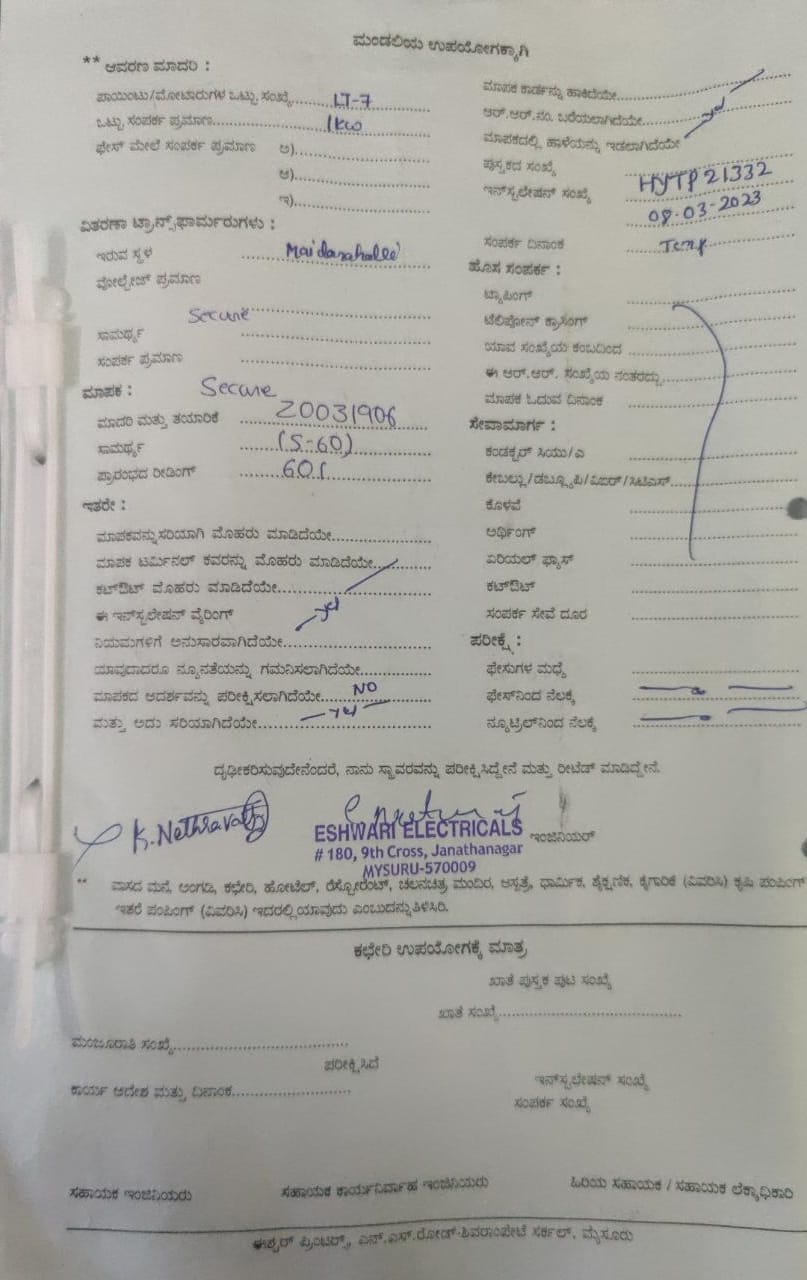 ಮಂಡಲಿಯ ಉಪಯೋಗಕ್ಕಾಗಿ
** ಆವರಣ ಮಾದರಿ :
ಪಾಯಿಂಟು/ಮೋಟಾರುಗಳ ಒಟ್ಟು ಸಂಖ್ಯೆ LT-7
ಒಟ್ಟು ಸಂಪರ್ಕ ಪ್ರಮಾಣ 1kw
ಫೇಸ್ ಮೇಲೆ ಸಂಪರ್ಕ ಪ್ರಮಾಣ ಅ)
ಆ)
ಇ)
ವಿತರಣಾ ಟ್ರಾನ್ಸ್‌ಫಾರ್ಮರುಗಳು :
ಇರುವ ಸ್ಥಳ Maidanahalli
ವೋಲ್ಟೇಜ್ ಪ್ರಮಾಣ
Secure
ಸಾಮರ್ಥ್ಯ
ಸಂಪರ್ಕ ಪ್ರಮಾಣ
ಮಾಪಕ : Secure
ಮಾದರಿ ಮತ್ತು ತಯಾರಿಕೆ 20031906
ಸಾಮರ್ಥ್ಯ (5-60)
ಪ್ರಾರಂಭದ ರೀಡಿಂಗ್
ಇತರೇ :
ಮಾಪಕವನ್ನು ಸರಿಯಾಗಿ ಮೊಹರು ಮಾಡಿದೆಯೇ
ಮಾಪಕ ಟರ್ಮಿನಲ್ ಕವರನ್ನು ಮೊಹರು ಮಾಡಿದೆಯೇ
ಕಟ್‌ಔಟ್ ಮೊಹರು ಮಾಡಿದೆಯೇ
ಈ ಇನ್‌ಸ್ಟಲೇಷನ್ ವೈರಿಂಗ್ yes
ನಿಯಮಗಳಿಗೆ ಅನುಸಾರವಾಗಿದೆಯೇ
ಯಾವುದಾದರೂ ನ್ಯೂನತೆಯನ್ನು ಗಮನಿಸಲಾಗಿದೆಯೇ
ಮಾಪಕದ ಆದರ್ಶವನ್ನು ಪರೀಕ್ಷಿಸಲಾಗಿದೆಯೇ NO
ಮತ್ತು ಅದು ಸರಿಯಾಗಿದೆಯೇ yes
ಮಾಪಕ ಕಾರ್ಡನ್ನು ಹಾಕಿದೆಯೇ
ಆರ್.ಆರ್.ನಂ. ಬರೆಯಲಾಗಿದೆಯೇ yes
ಮಾಪಕದಲ್ಲಿ ಹಾಳೆಯನ್ನು ಇಡಲಾಗಿದೆಯೇ
ಪುಸ್ತಕದ ಸಂಖ್ಯೆ
ಇನ್‌ಸ್ಟಲೇಷನ್ ಸಂಖ್ಯೆ HYTP21332
08-03-2023
ಸಂಪರ್ಕ ದಿನಾಂಕ Temp
ಹೊಸ ಸಂಪರ್ಕ :
ಟ್ಯಾಪಿಂಗ್
ಟೆಲಿಫೋನ್ ಕ್ರಾಸಿಂಗ್
ಯಾವ ಸಂಖ್ಯೆಯ ಕಂಬದಿಂದ
ಈ ಆರ್.ಆರ್. ಸಂಖ್ಯೆಯ ನಂತರದ್ದು
ಮಾಪಕ ಓದುವ ದಿನಾಂಕ
ಸೇವಾಮಾರ್ಗ :
ಕಂಡಕ್ಟರ್ ಸಿಯು/ಎ
ಕೇಬಲ್ಲು/ಡಬ್ಲ್ಯೂಪಿ/ವಿಐಆರ್/ಸಿಟಿಎಸ್
ಕೊಳವೆ
ಅರ್ಥಿಂಗ್
ಏರಿಯಲ್ ಫ್ಯೂಸ್
ಕಟ್‌ಔಟ್
ಸಂಪರ್ಕ ಸೇವೆ ದೂರ
ಪರೀಕ್ಷೆ :
ಫೇಸುಗಳ ಮಧ್ಯೆ
ಫೇಸ್‌ನಿಂದ ನೆಲಕ್ಕೆ
ನ್ಯೂಟ್ರಲ್‌ನಿಂದ ನೆಲಕ್ಕೆ
ದೃಢೀಕರಿಸುವುದೇನೆಂದರೆ, ನಾನು ಸ್ಥಾವರವನ್ನು ಪರೀಕ್ಷಿಸಿದ್ದೇನೆ ಮತ್ತು ರೀಟೆಡ್ ಮಾಡಿದ್ದೇನೆ.
K. Nethravathi
ESHWARI ELECTRICALS ಇಂಜಿನಿಯರ್
# 180, 9th Cross, Janathanagar
MYSURU-570009
** ವಾಸದ ಮನೆ, ಅಂಗಡಿ, ಕಛೇರಿ, ಹೋಟೆಲ್, ರೆಸ್ಟೋರೆಂಟ್, ಚಲನಚಿತ್ರ ಮಂದಿರ, ಆಸ್ಪತ್ರೆ, ಧಾರ್ಮಿಕ, ಶೈಕ್ಷಣಿಕ, ಕೈಗಾರಿಕೆ (ವಿವರಿಸಿ) ಕೃಷಿ ಪಂಪಿಂಗ್
ಇತರೆ ಪಂಪಿಂಗ್ (ವಿವರಿಸಿ) ಇದರಲ್ಲಿ ಯಾವುದು ಎಂಬುದನ್ನು ತಿಳಿಸಿರಿ.
ಕಛೇರಿ ಉಪಯೋಗಕ್ಕೆ ಮಾತ್ರ
ಖಾತೆ ಪುಸ್ತಕ ಪುಟ ಸಂಖ್ಯೆ
ಖಾತೆ ಸಂಖ್ಯೆ
ಮಂಜೂರಾತಿ ಸಂಖ್ಯೆ
ಪರೀಕ್ಷಿಸಿದೆ
ಕಾರ್ಯ ಆದೇಶ ಮತ್ತು ದಿನಾಂಕ
ಇನ್‌ಸ್ಟಲೇಷನ್ ಸಂಖ್ಯೆ
ಸಂಪರ್ಕ ಸಂಖ್ಯೆ
ಸಹಾಯಕ ಇಂಜಿನಿಯರು ಸಹಾಯಕ ಕಾರ್ಯನಿರ್ವಾಹ ಇಂಜಿನಿಯರು ಹಿರಿಯ ಸಹಾಯಕ / ಸಹಾಯಕ ಲೆಕ್ಕಾಧಿಕಾರಿ
ಈಶ್ವರ್ ಪ್ರಿಂಟರ್ಸ್, ಎನ್.ಎಸ್.ರೋಡ್-ಶಿವರಾಂಪೇಟೆ ಸರ್ಕಲ್, ಮೈಸೂರು